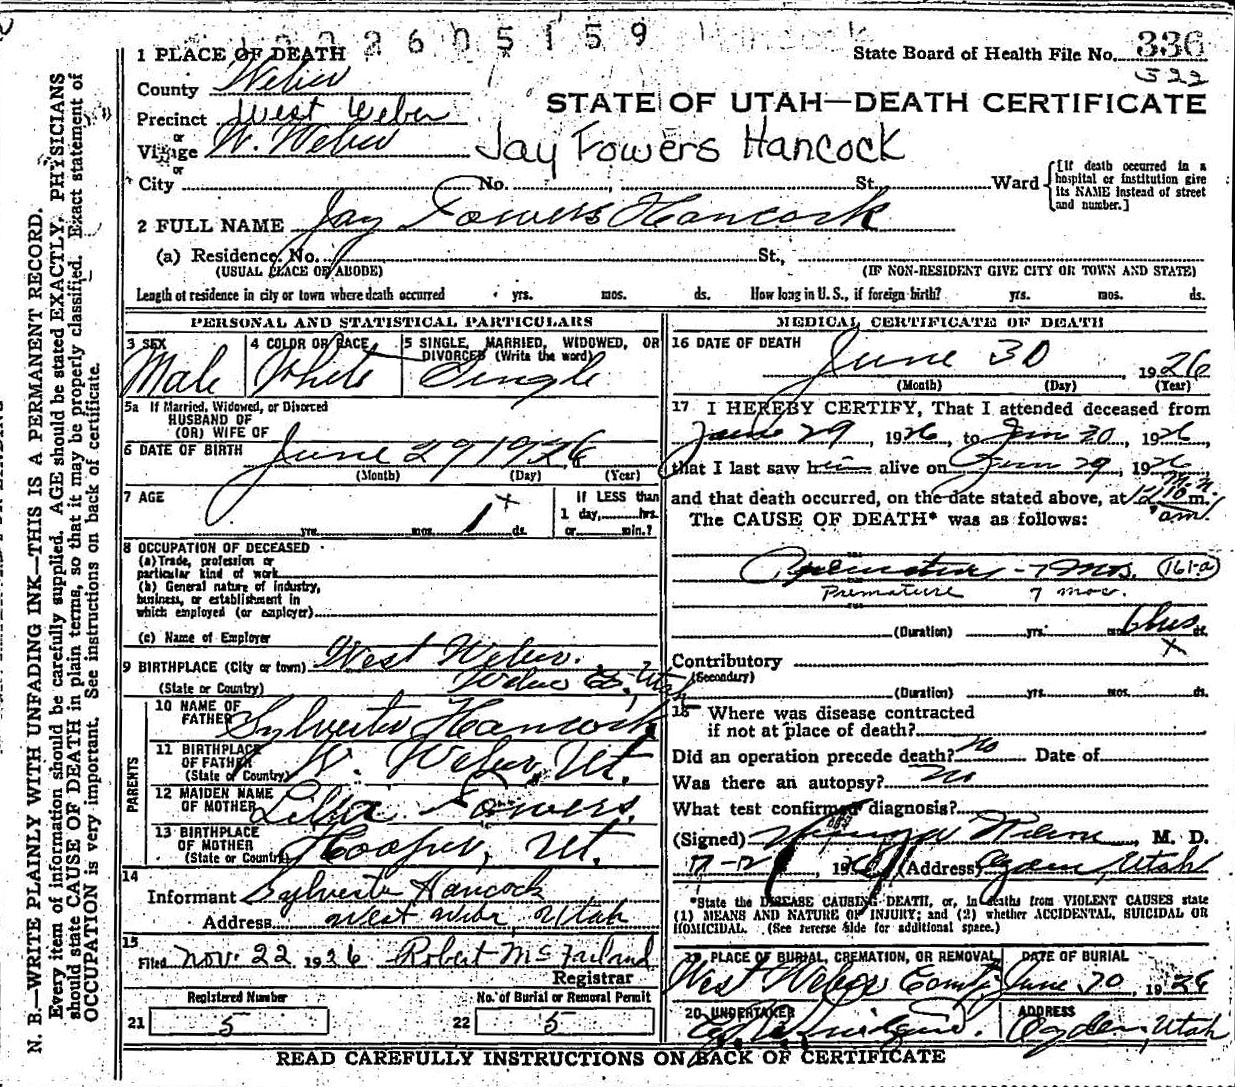 2 2 6 0 5 1 5 9 Hancock
1 PLACE OF DEATH
State Board of Health File No. 336
322
County Weber
STATE OF UTAH—DEATH CERTIFICATE
Precinct West Weber
or
Village W. Weber
Jay Fowers Hancock
or
City No. , St. Ward
[If death occurred in a
hospital or institution give
its NAME instead of street
and number.]
2 FULL NAME Jay Fowers Hancock
(a) Residence, No. St.,
(USUAL PLACE OF ABODE) (IF NON-RESIDENT GIVE CITY OR TOWN AND STATE)
Length of residence in city or town where death occurred yrs. mos. ds. How long in U. S., if foreign birth? yrs. mos. ds.
PERSONAL AND STATISTICAL PARTICULARS
3 SEX
Male
4 COLOR OR RACE
White
5 SINGLE, MARRIED, WIDOWED, OR
DIVORCED (Write the word)
Single
5a If Married, Widowed, or Divorced
HUSBAND OF
(OR) WIFE OF
6 DATE OF BIRTH June 29 1926
(Month) (Day) (Year)
7 AGE
yrs. mos. 1 ds.
x
If LESS than
1 day, hrs.
or min.?
8 OCCUPATION OF DECEASED
(a) Trade, profession or
particular kind of work
(b) General nature of industry,
business, or establishment in
which employed (or employer)
(c) Name of Employer
9 BIRTHPLACE (City or town) West Weber.
(State or Country) Weber Co, Utah
PARENTS
10 NAME OF
FATHER Sylvester Hancock
11 BIRTHPLACE
OF FATHER
(State or Country) W. Weber, Ut.
12 MAIDEN NAME
OF MOTHER Fowers.
13 BIRTHPLACE
OF MOTHER
(State or Country) Hooper, Ut.
14
Informant Sylvester Hancock
Address West Weber, Utah
15
Filed Nov. 22 1926 Robert McFarland
Registrar
Registered Number
21 5
No. of Burial or Removal Permit
22 5
MEDICAL CERTIFICATE OF DEATH
16 DATE OF DEATH
June 30 1926
(Month) (Day) (Year)
17 I HEREBY CERTIFY, That I attended deceased from
June 29, 1926, to Jun 30, 1926,
that I last saw him alive on Jun 29, 1926,
and that death occurred, on the date stated above, at 12 10 m.
M.N.
am.
The CAUSE OF DEATH* was as follows:
Premature - 7 mos. (161-a)
Premature 7 mos.
(Duration) yrs. mos. 6 hrs ds.
x
Contributory
(Secondary)
(Duration) yrs. mos. ds.
18 Where was disease contracted
if not at place of death?
Did an operation precede death? no Date of
Was there an autopsy? no
What test confirmed diagnosis?
(Signed) Wilson, M. D.
7-2, 1926 (Address) Ogden, Utah
*State the DISEASE CAUSING DEATH, or, in deaths from VIOLENT CAUSES state
(1) MEANS AND NATURE OF INJURY; and (2) whether ACCIDENTAL, SUICIDAL OR
HOMICIDAL. (See reverse side for additional space.)
19 PLACE OF BURIAL, CREMATION, OR REMOVAL
West Weber County
DATE OF BURIAL
June 30, 1926
20 UNDERTAKER
ADDRESS
Ogden, Utah
READ CAREFULLY INSTRUCTIONS ON BACK OF CERTIFICATE
N. B.—WRITE PLAINLY WITH UNFADING INK—THIS IS A PERMANENT RECORD.
Every item of information should be carefully supplied. AGE should be stated EXACTLY. PHYSICIANS
should state CAUSE OF DEATH in plain terms, so that it may be properly classified. Exact statement of
OCCUPATION is very important. See instructions on back of certificate.